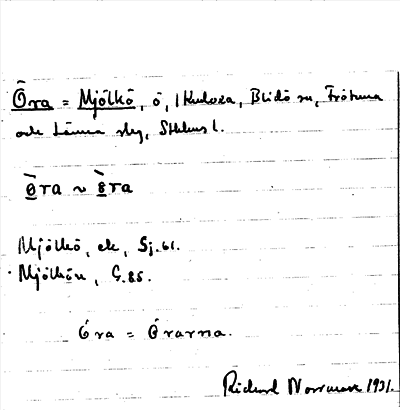 Öra = Mjölkö, ö, i Kudoxa, Blidö sn, Frötuna
och Länna slg, Sthlms l.
ø̀ra ~ 8̀ra
Mjölkö, ek, Sj.61.
Mjölkön, G.85.
Óra = Órarna.
Richard Norrman 1931.